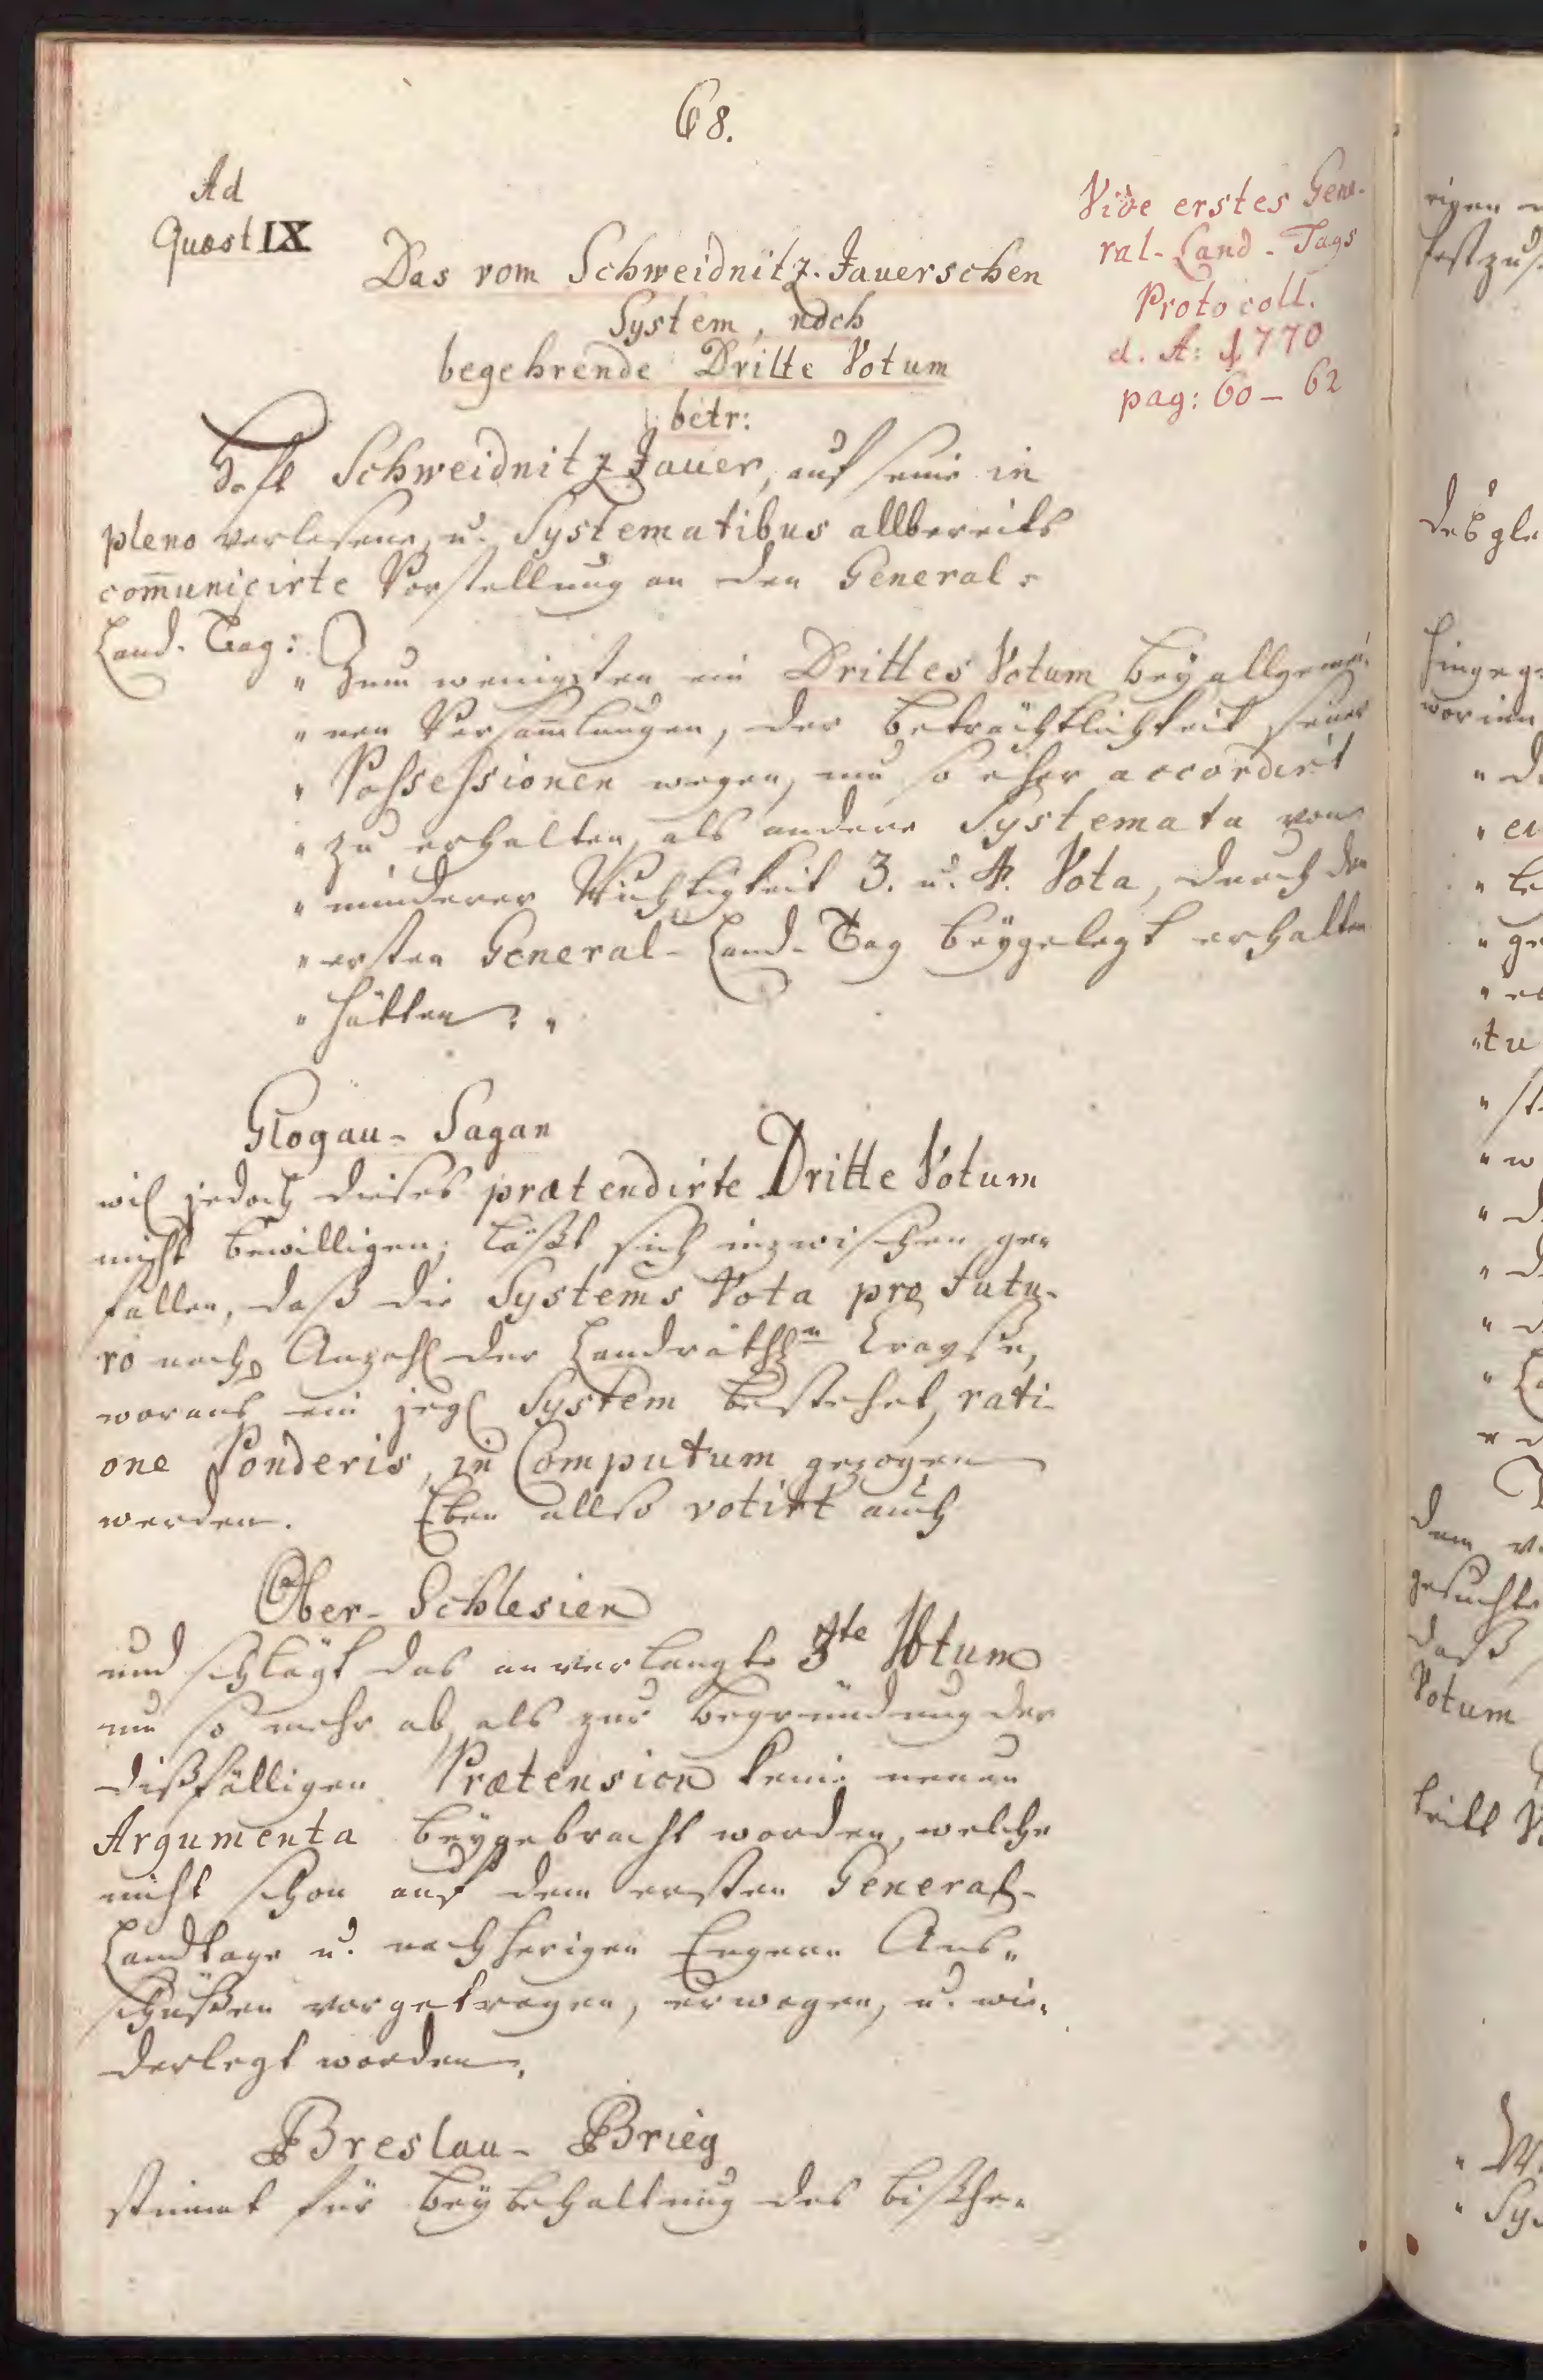 68.
Ad
Quæst IX
Vide erstes Gene-
ral-Land-Tags
Protocoll.
d. A: 1770
pag: 60 – 62
Das vom Schweidnitz-Jauerschen
System, noch
begehrende Dritte Votum
betr:
Schweidnitz Jauer, auf seine in
pleno verlesene, u. Systematibus allbereits
com̄unicirte Vorstellung an den General-
Land-Tag:
" Zum wenigsten ein Drittes Votum bey allgemei-
" nen Versam̄lungen, der Beträchtlichkeit seiner
" Possessionen wegen, um so eher accordirt
" zu erhalten, als andere Systemata von
" minderer Wichtigkeit 3. u. 4. Vota, durch den
" ersten General-Land-Tag beygelegt erhalten
" hätten: "
Glogau-Sagan
wil jedoch dieses prætendirte Dritte Votum
nicht bewilligen; läßt sich inzwischen ge-
fallen, daß die Systems Vota pro futu-
ro nach Anzahl der Landräthln Crayße,
woraus ein jegl System bestehet, rati-
one Ponderis, in Computum gezogen
werden. Eben allso votirt auch
Ober-Schlesien
und schlägt das anverlangte 3te Votum
um so mehr ab, als zur Begründung der
dißfälligen Prætension keine neuen
Argumenta beygebracht worden, welche
nicht schon auf dem ersten General-
Landtage u. nachherigen Engern Aus-
schüßen vorgetragen, erwogen, u. wie-
derlegt worden.
Breslau-Brieg
stimmt für Beybehaltung des bisthe-